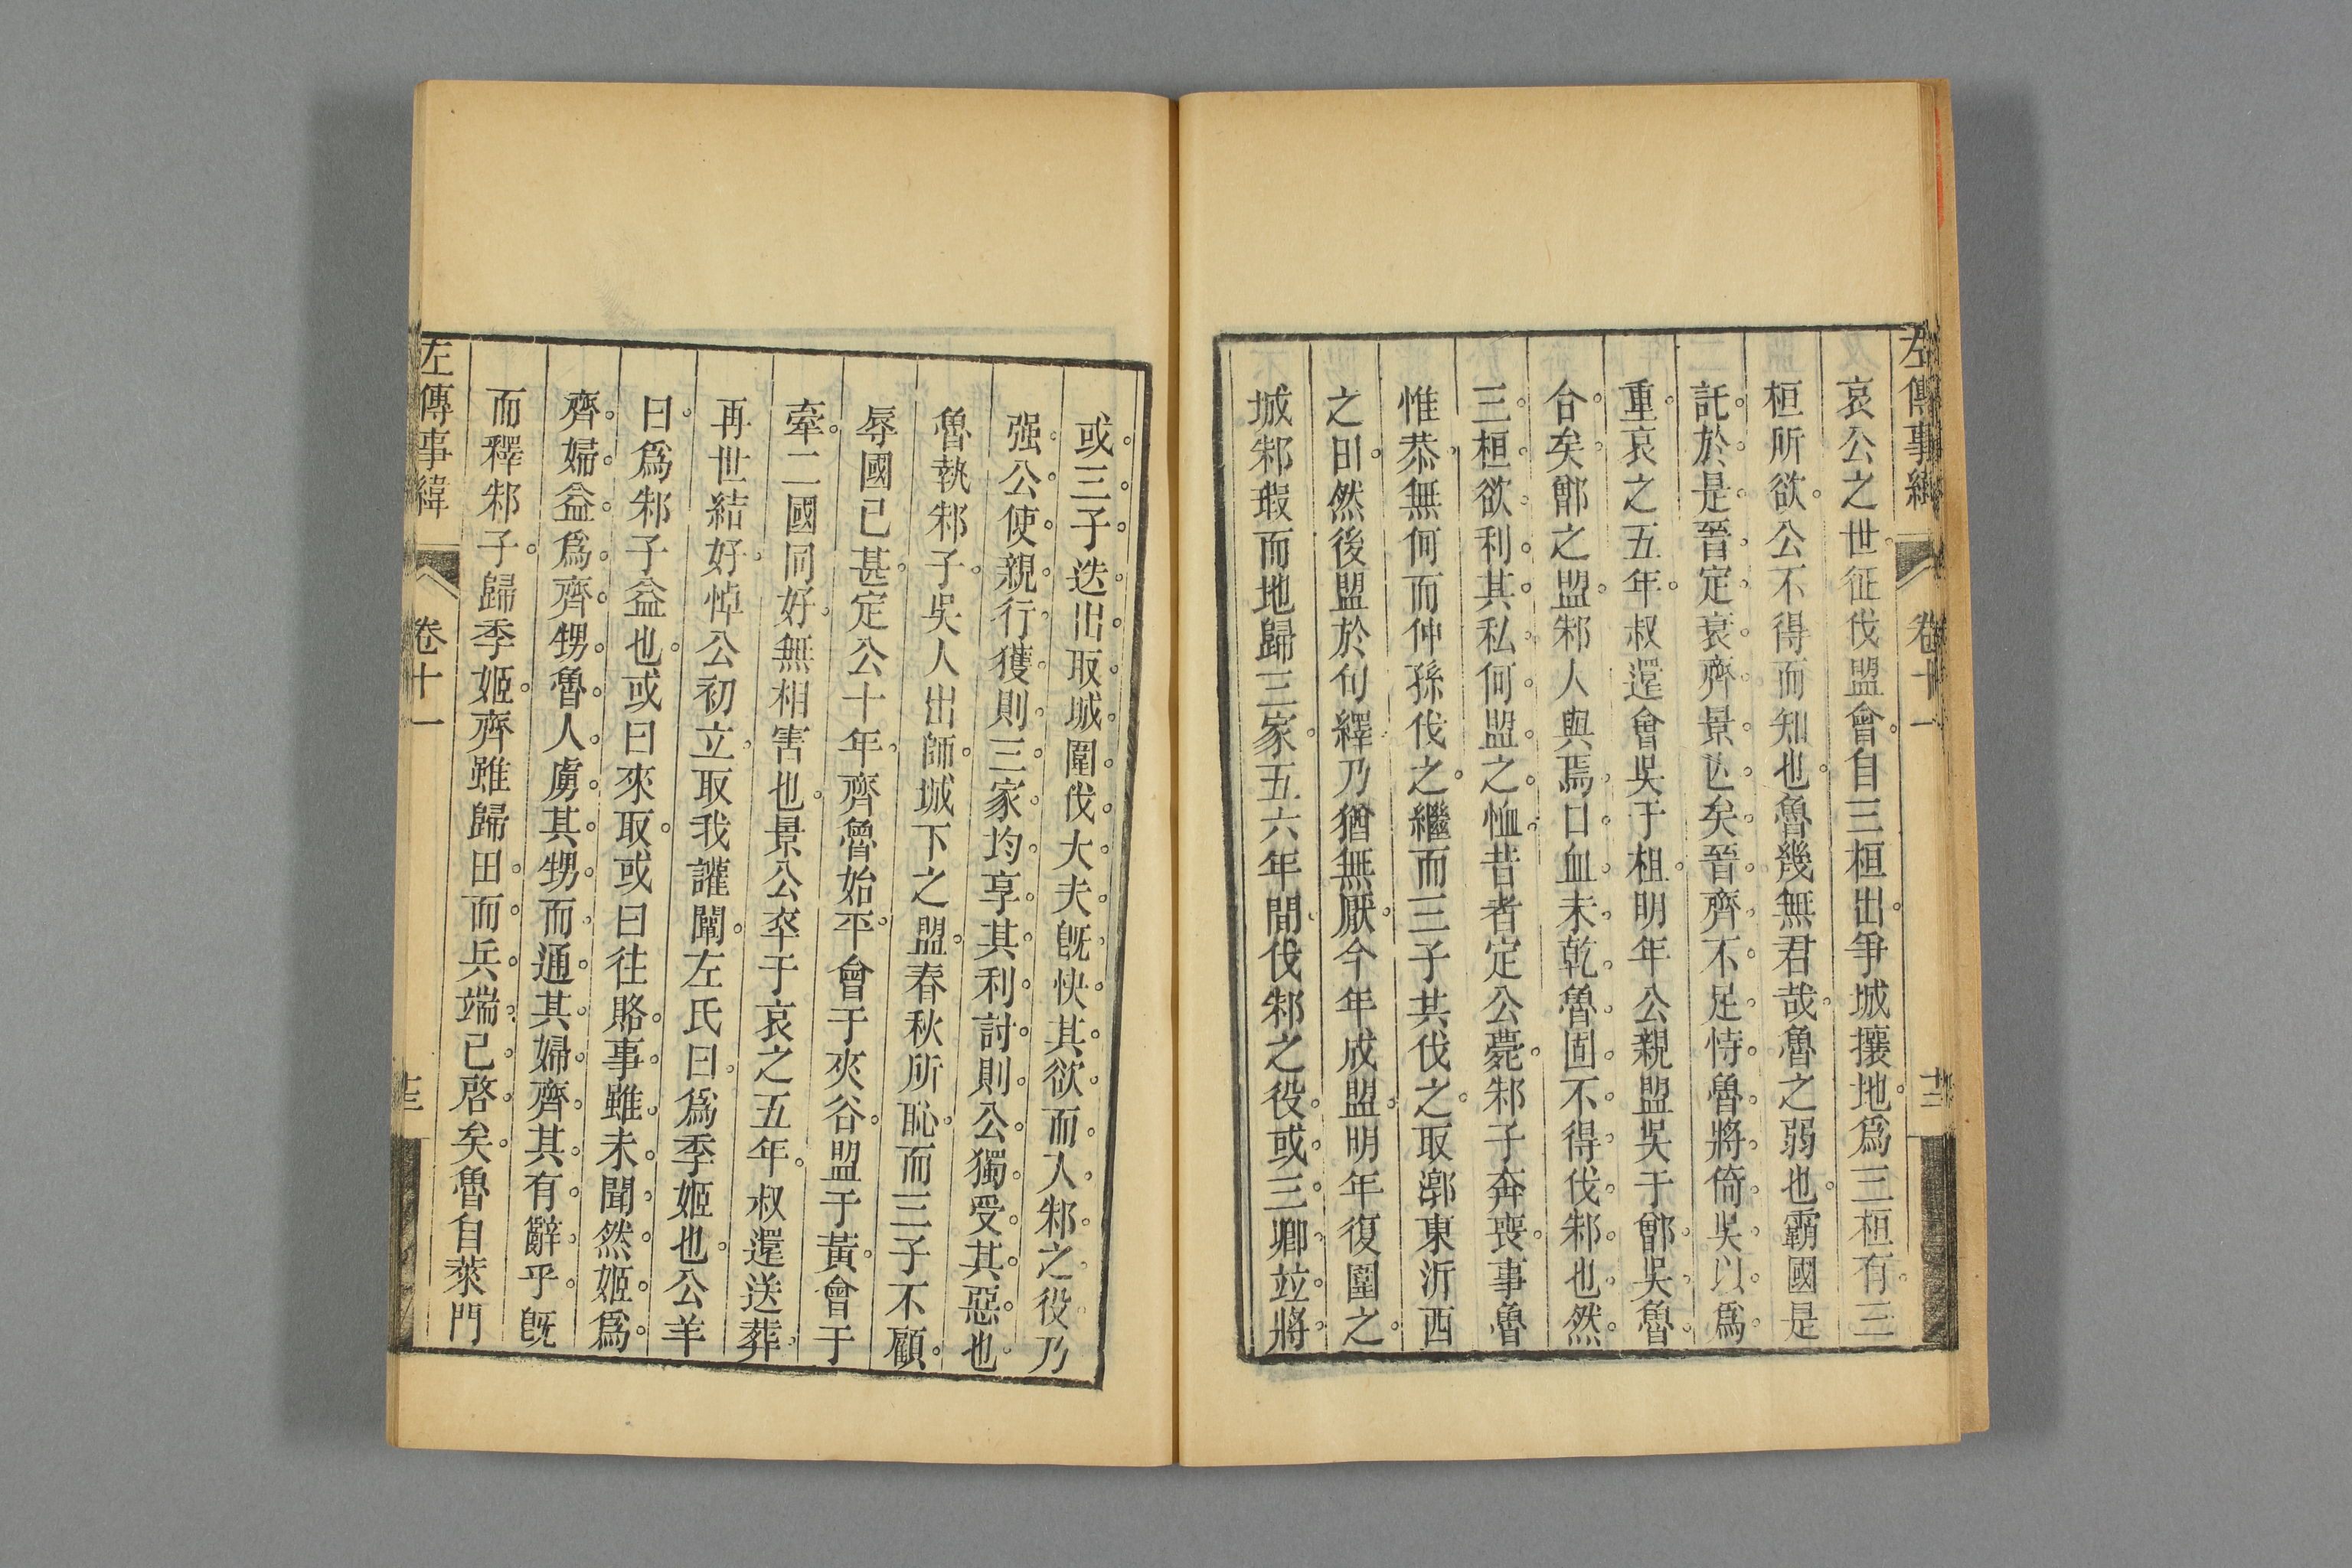 左傳事緯 卷十一 十二
哀公之世征伐盟會自三桓出爭城攘地爲三桓有三
桓所欲公不得而知也魯幾無君哉魯之弱也霸國是
託於是晉定衰齊景亾矣晉齊不足恃魯將倚吳以爲
重哀之五年叔還會吳于柤明年公親盟吳于鄫吳魯
合矣鄫之盟邾人與焉口血未乾魯固不得伐邾也然
三桓欲利其私何盟之恤昔者定公薨邾子奔喪事魯
惟恭無何而仲孫伐之繼而三子其伐之取漷東沂西
之田然後盟於句繹乃猶無厭今年成盟明年復圍之
城邾瑕而地歸三家五六年間伐邾之役或三卿竝將
或三子迭出取城圍伐大夫旣快其欲而入邾之役乃
强公使親行獲則三家均享其利討則公獨受其惡也
魯執邾子吳人出師城下之盟春秋所恥而三子不顧
辱國已甚定公十年齊魯始平會于夾谷盟于黃會于
牽二國同好無相害也景公卒于哀之五年叔還送葬
再世結好悼公初立取我讙闡左氏曰爲季姬也公羊
曰爲邾子益也或曰來取或曰往賂事雖未聞然姬爲
齊婦益爲齊甥魯人虜其甥而通其婦齊其有辭乎旣
而釋邾子歸季姬齊雖歸田而兵端已啓矣魯自萊門
左傳事緯 卷十一 十三